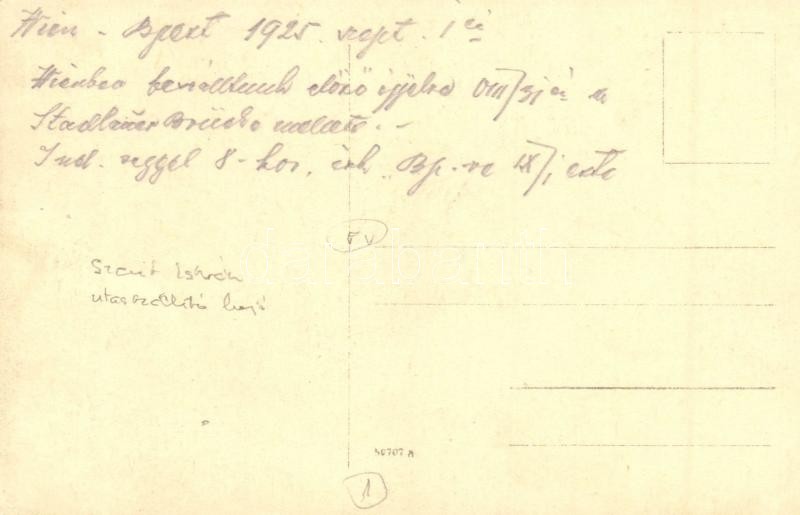 Wien - Bpest 1925. szept. 1 én
Wienben beszálltunk előző éjjelre VIII/31 én a
Stadlauer Brücke mellett. -
Ind. reggel 8-kor, érk. Bp.-re IX/1 este
FV
Szent István
utasszállító hajó
50707 A
1